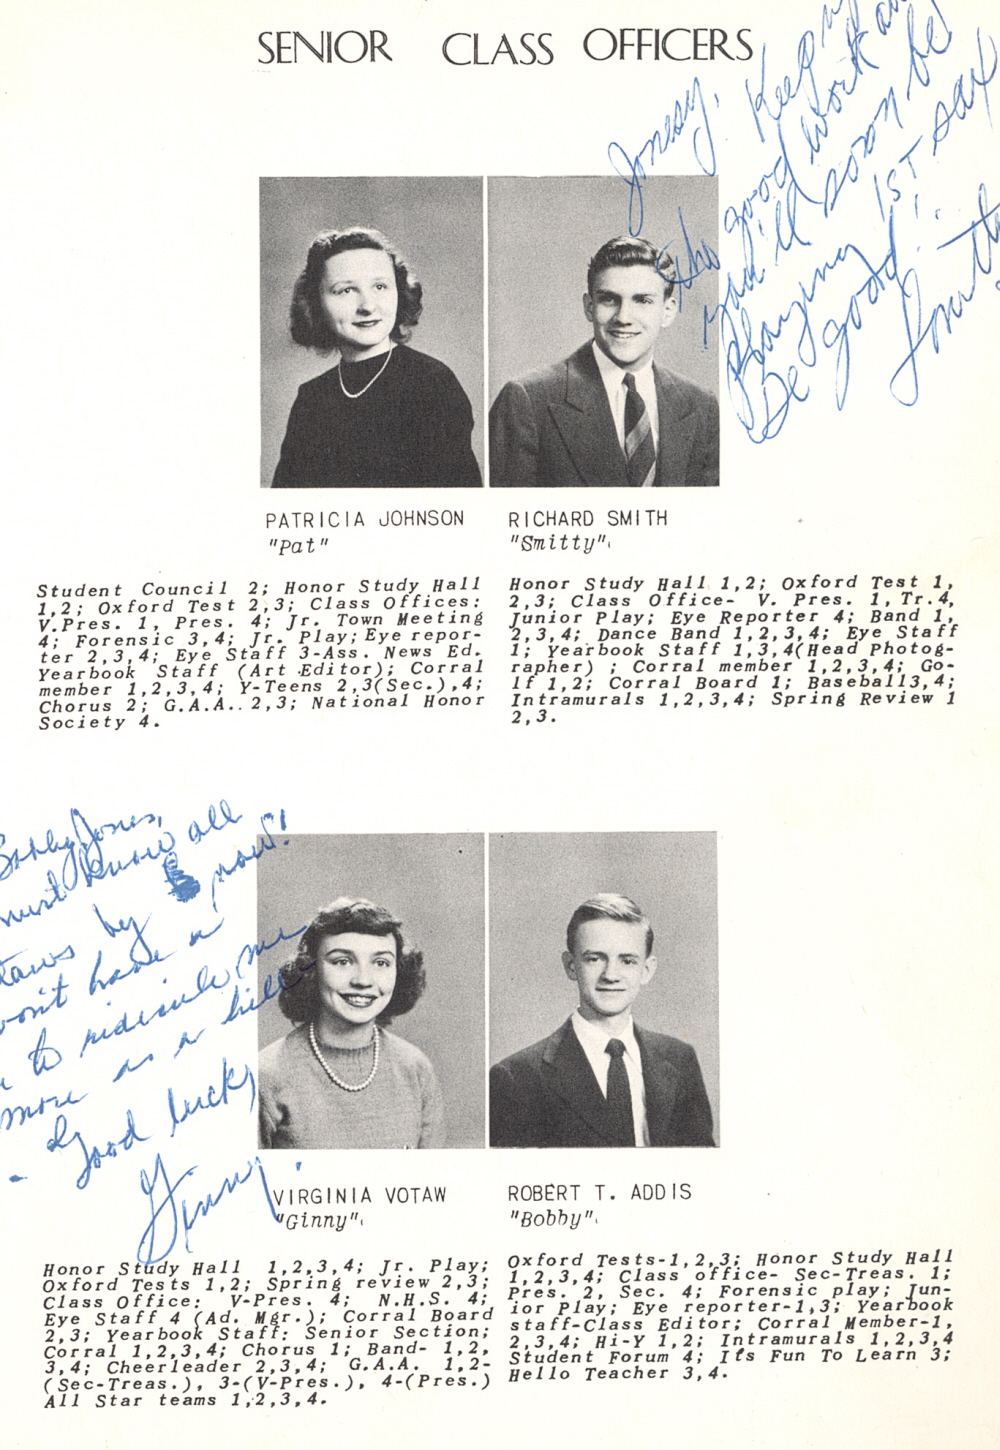 SENIOR CLASS OFFICERS
Jonesy, Keep
the good work
you'll soon be
Playing 1ST sax
Be good!
Smitty
PATRICIA JOHNSON
"Pat"
Student Council 2; Honor Study Hall
1,2; Oxford Test 2,3; Class Offices:
V.Pres. 1, Pres. 4; Jr. Town Meeting
4; Forensic 3,4; Jr. Play; Eye repor-
ter 2,3,4; Eye Staff 3-Ass. News Ed.
Yearbook Staff (Art Editor); Corral
member 1,2,3,4; Y-Teens 2,3(Sec.),4;
Chorus 2; G.A.A.. 2,3; National Honor
Society 4.
RICHARD SMITH
"Smitty"
Honor Study Hall 1,2; Oxford Test 1,
2,3; Class Office- V. Pres. 1, Tr.4,
Junior Play; Eye Reporter 4; Band 1,
2,3,4; Dance Band 1,2,3,4; Eye Staff
1; Yearbook Staff 1,3,4(Head Photog-
rapher) ; Corral member 1,2,3,4; Go-
lf 1,2; Corral Board 1; Baseball3,4;
Intramurals 1,2,3,4; Spring Review 1
2,3.
Bobby Jones,
must know all
by now!
won't have a
to ridicule me
more as a hill
Good luck,
Ginny
VIRGINIA VOTAW
"Ginny"
Honor Study Hall 1,2,3,4; Jr. Play;
Oxford Tests 1,2; Spring review 2,3;
Class Office: V-Pres. 4; N.H.S. 4;
Eye Staff 4 (Ad. Mgr.); Corral Board
2,3; Yearbook Staff: Senior Section;
Corral 1,2,3,4; Chorus 1; Band- 1,2,
3,4; Cheerleader 2,3,4; G.A.A. 1,2-
(Sec-Treas.), 3-(V-Pres.), 4-(Pres.)
All Star teams 1,2,3,4.
ROBERT T. ADDIS
"Bobby"
Oxford Tests-1,2,3; Honor Study Hall
1,2,3,4; Class office- Sec-Treas. 1;
Pres. 2, Sec. 4; Forensic play; Jun-
ior Play; Eye reporter-1,3; Yearbook
staff-Class Editor; Corral Member-1,
2,3,4; Hi-Y 1,2; Intramurals 1,2,3,4
Student Forum 4; It's Fun To Learn 3;
Hello Teacher 3,4.